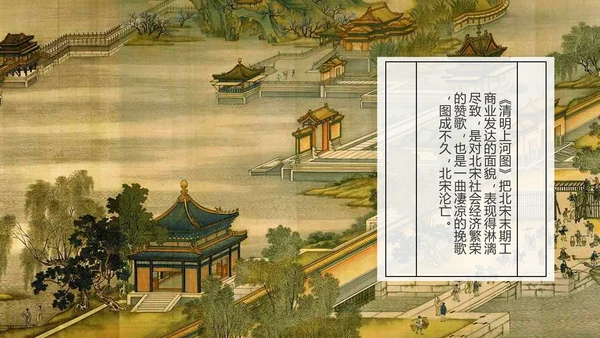 《清明上河图》把北宋末期工
商业发达的面貌，表现得淋漓
尽致，是对北宋社会经济繁荣
的赞歌，也是一曲凄凉的挽歌
，图成不久，北宋沦亡。